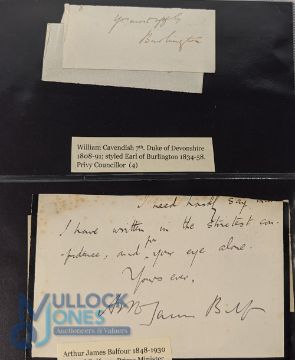 Yours truly
Burlington
William Cavendish 7th. Duke of Devonshire
1808-91; styled Earl of Burlington 1834-58.
Privy Councillor (4)
I need hardly say
I have written in the strictest con-
fidence, and for your eye alone.
Yours ever,
Arthur James Balfour
MULLOCK
JONES
Auctioneers & Valuers
Arthur James Balfour 1848-1930
Prime Minister